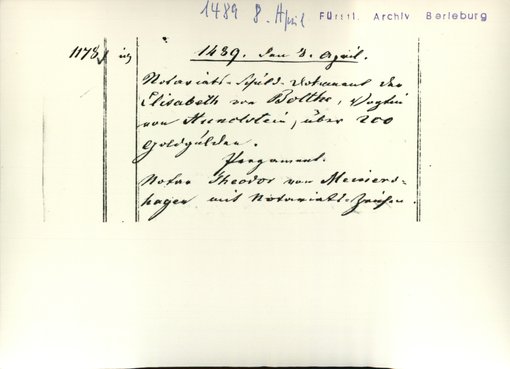 1489 8. April Fürstl. Archiv Berleburg
1178
1489. den 8. April.
Notariats-Schuld-Dokument der
Elisabeth von Bolthe, Vogtin
von Hundstein, über 200
Goldgülden.
Pergament.
Notar Theodor von Meiners-
hagen mit Notariats-Zeichen.